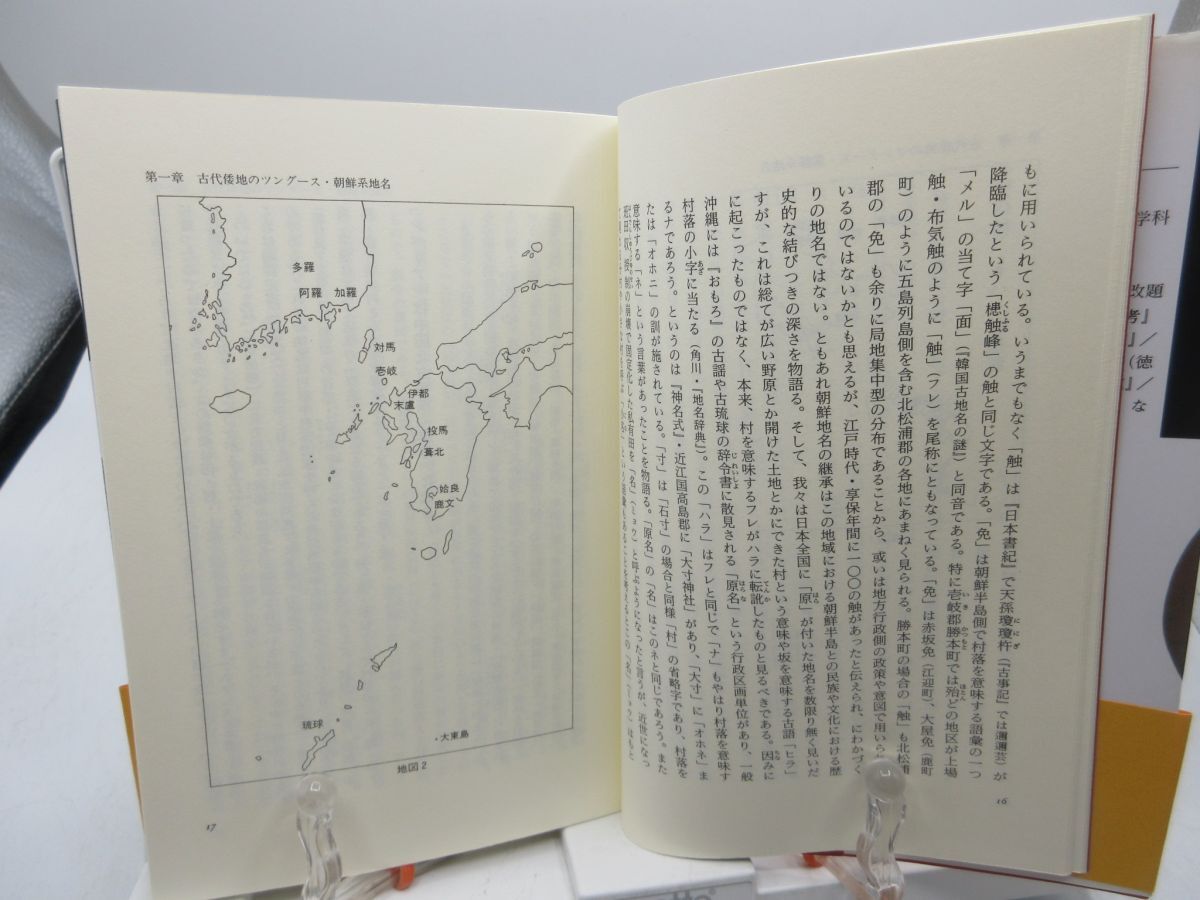 もに用いられている。いうまでもなく「触」は『日本書紀』で天孫瓊瓊杵（『古事記』では邇邇芸）が
降臨したという「槵触峰」の触と同じ文字である。「免」は朝鮮半島側で村落を意味する語彙の一つ
「メル」の当て字「面」（『韓国古地名の謎』）と同音である。特に壱岐郡勝本町では殆どの地区が上場
触・布気触のように「触」（フレ）を尾称にともなっている。「免」は赤坂免（江迎町）、大屋免（鹿町
町）のように五島列島側を含む北松浦郡の各地にあまねく見られる。勝本町の場合の「触」も北松浦
郡の「免」も余りに局地集中型の分布であることから、或いは地方行政側の政策や意図で用いられて
いるのではないかとも思えるが、江戸時代・享保年間に一〇〇の触があったと伝えられ、にわかづく
りの地名ではない。ともあれ朝鮮地名の継承はこの地域における朝鮮半島との民族や文化における歴
史的な結びつきの深さを物語る。そして、我々は日本全国に「原」が付いた地名を数限り無く見いだ
すが、これは総てが広い野原とか開けた土地とかにできた村という意味や坂を意味する古語「ヒラ」
に起こったものではなく、本来、村を意味するフレがハラに転訛したものと見るべきである。因みに
沖縄には『おもろ』の古謡や古琉球の辞令書に散見される「原名」という行政区画単位があり、一般
村落の小字に当たる（角川・『地名辞典』）。この「ハラ」はフレと同じで「ナ」もやはり村落を意味す
るナであろう。というのは『神名式』・近江国高島郡に「大寸神社」があり、「大寸」に「オホネ」ま
たは「オホニ」の訓が施されている。「寸」は「石寸」の場合と同様「村」の省略字であり、村落を
意味する「ネ」という言葉があったことを物語る。「原名」の「名」はこのネと同じであろう。また
班田収授制の崩壊で固定化した私有田を「名」（ミョウ）と呼ぶようになったと言うが、近世になっ
16
第一章　古代倭地のツングース・朝鮮系地名
多羅
阿羅　加羅
対馬
壱岐
伊都
末盧
投馬
蓋北
姶良
鹿文
琉球
大東島
地図2
17
学科
改題
考』
』／
（徳
』な